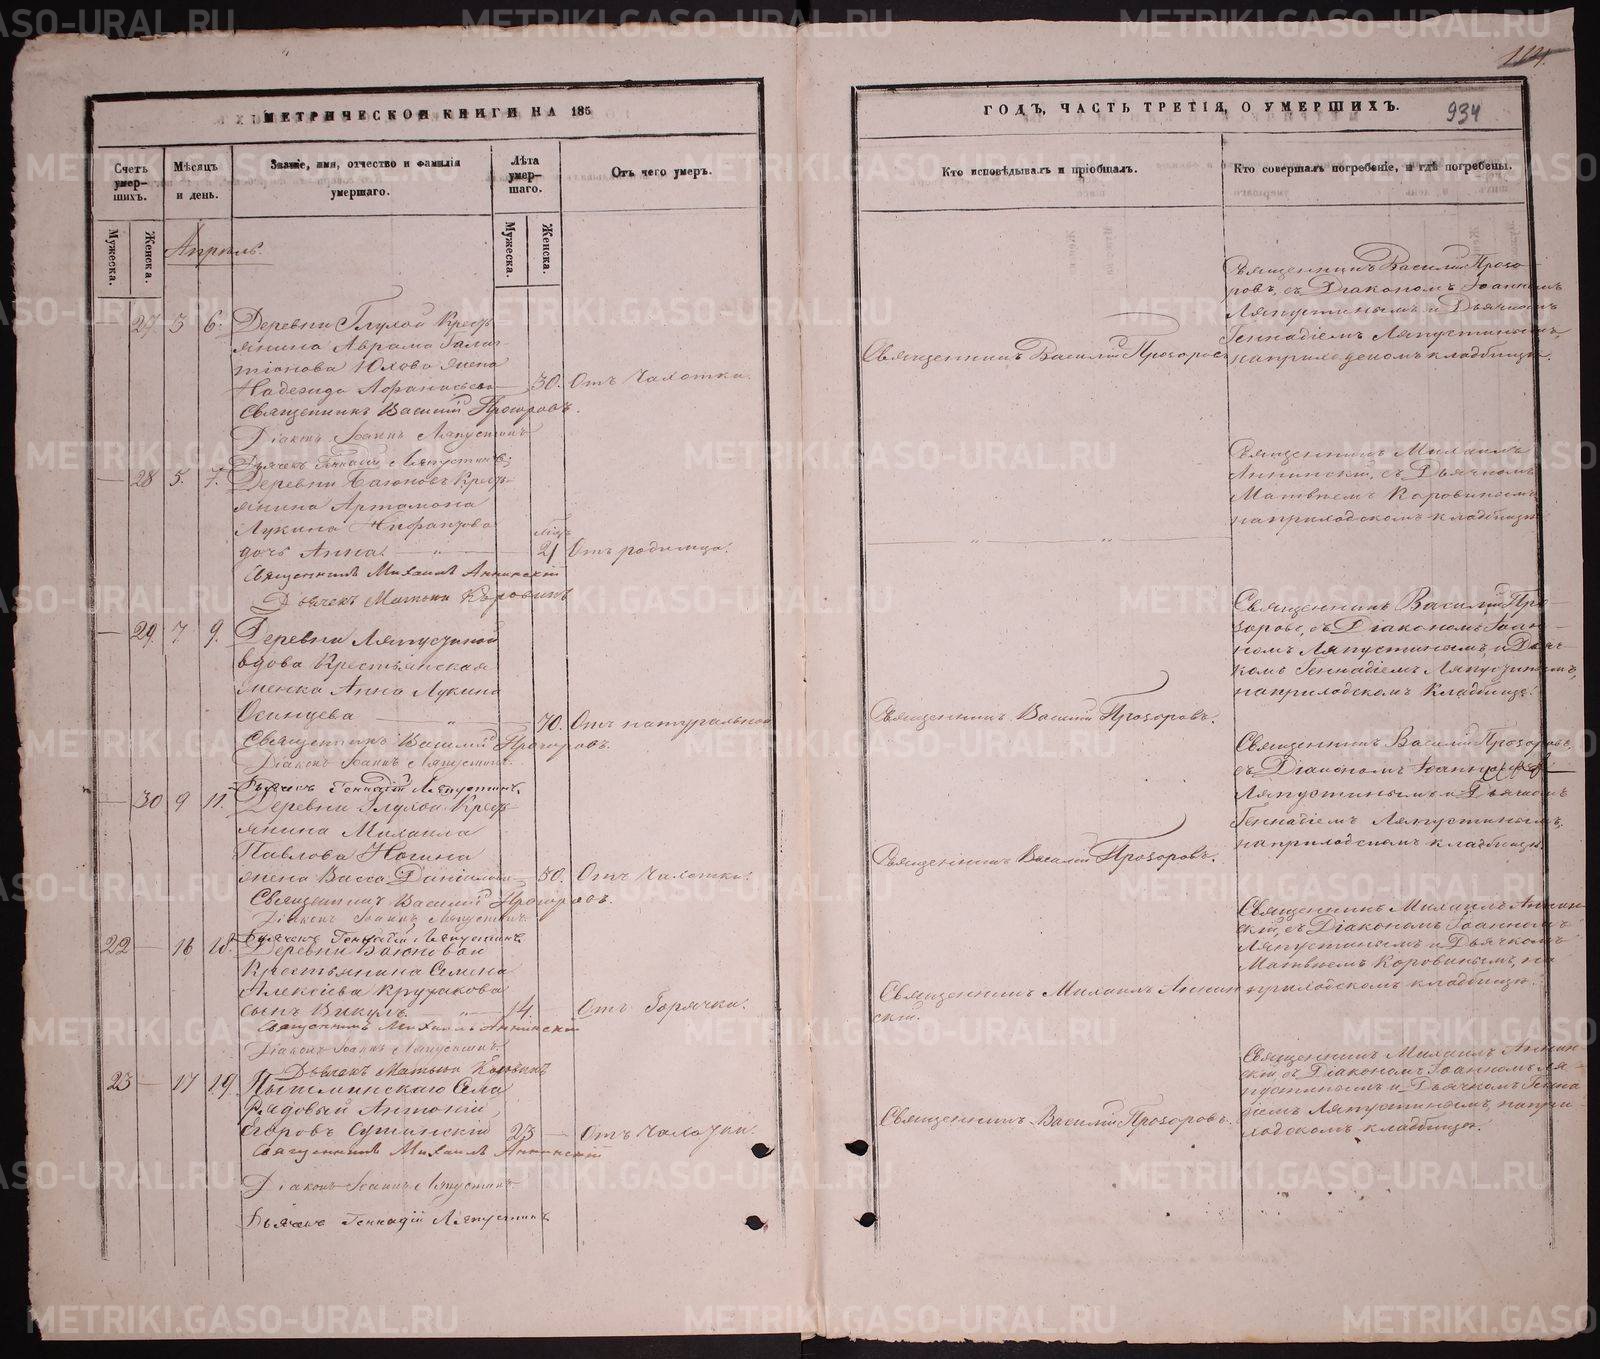 МЕТРИЧЕСКОЙ КНИГИ НА 185
Счетъ умер-шихъ.
Мѣсяцъ и день.
Званіе, имя, отчество и фамилія умершаго.
Лѣта умер-шаго.
Отъ чего умеръ.
Мужеска.
Женска.
Мужеска.
Женска.
Апрѣль.
27 3 6. Деревни Глухой Крест
янина Аврама Галак
тіонова Юхова жена
Надежда Афанасьева 30. Отъ Чахотки.
Священникъ Василій Прозоровъ.
Діаконъ Іоаннъ Ляпустинъ
Дьячекъ Геннадій Ляпустинъ
28 5. 7. Деревни Баюновой Крест
янина Артамона
Лукина
дочь Анна. 21 Отъ родимца.
Священникъ Михаилъ Аннинскій
Дьячекъ Матвѣй Коровинъ
29 7. 9. Деревни Ляпустиной
вдова Крестьянская
женка Анна Лукина
Осинцева 70. Отъ натуральной
Священникъ Василій Прозоровъ.
Діаконъ Іоаннъ Ляпустинъ.
Дьячекъ Геннадій Ляпустинъ.
30 9 11. Деревни Глухой Крест
янина Михаила
Павлова Ногина
жена Васса Данилова 50. Отъ Чахотки.
Священникъ Василій Прозоровъ.
Діаконъ Іоаннъ Ляпустинъ
Дьячекъ Геннадій Ляпустинъ
22 16 18. Деревни Баюновой
Крестьянина Семена
Алексѣева Крутакова
сынъ Викулъ 14. Отъ Горячки.
Священникъ Михаилъ Аннинскій
Діаконъ Іоаннъ Ляпустинъ.
Дьячекъ Матвѣй Коровинъ
23 17 19. Пышминскаго Села
Рядовый Антоній
Егоровъ Сушинскій 23 Отъ Чахотки.
Священникъ Михаилъ Аннинскій
Діаконъ Іоаннъ Ляпустинъ
Дьячекъ Геннадій Ляпустинъ
ГОДЪ, ЧАСТЬ ТРЕТІЯ, О УМЕРШИХЪ.
934
Кто исповѣдывалъ и пріобщалъ.
Кто совершалъ погребеніе, и гдѣ погребены.
Священникъ Василій Прозо-
ровъ, съ Діакономъ Іоанномъ
Ляпустинымъ и Дьячкомъ
Геннадіемъ Ляпустинымъ,
Священникъ Василій Прозоровъ на приходскомъ кладбищѣ.
Священникъ Михаилъ
Аннинскій, съ Дьячкомъ
Матвѣемъ Коровинымъ
на приходскомъ кладбищѣ
Священникъ Василій Про-
зоровъ, съ Діакономъ Іоан-
номъ Ляпустинымъ, и Дьяч-
комъ Геннадіемъ Ляпустинымъ,
на приходскомъ Кладбищѣ.
Священникъ Василій Прозоровъ.
Священникъ Василій Прозоровъ,
съ Діакономъ Іоанномъ
Ляпустинымъ и Дьячкомъ
Геннадіемъ Ляпустинымъ,
на приходскомъ кладбищѣ.
Священникъ Василій Прозоровъ.
Священникъ Михаилъ Аннин-
скій, съ Діакономъ Іоанномъ
Ляпустинымъ и Дьячкомъ
Матвѣемъ Коровинымъ, на
Священникъ Михаилъ Аннин приходскомъ кладбищѣ.
скій.
Священникъ Михаилъ Аннин-
скій, съ Діакономъ Іоанномъ Ля-
пустинымъ и Дьячкомъ Генна
діемъ Ляпустинымъ, на при-
ходскомъ кладбищѣ.
Священникъ Василій Прозоровъ.
METRIKI.GASO-URAL.RU